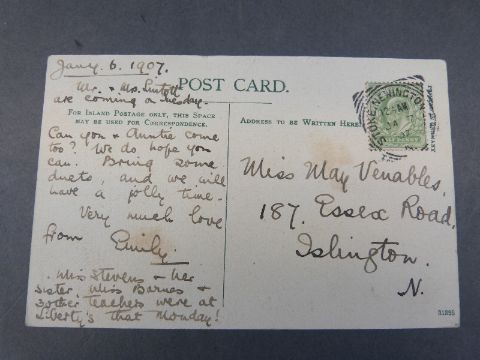 Jany. 6. 1907.
Mr. + Mrs. Lintott
are coming on Tuesday.
POST CARD.
FOR INLAND POSTAGE ONLY, THIS SPACE
MAY BE USED FOR CORRESPONDENCE.
Can you & Auntie come
too? We do hope you
can. Bring some
duets, and we will
have a jolly time.
Very much love
from Emily.
Miss Stevens + her
sister, Miss Barnes +
3 other teachers were at
Liberty's that Monday!
ADDRESS TO BE WRITTEN HERE.
STOKE-NEWINGTON
12 AM
JA
Miss May Venables,
187. Essex Road,
Islington.
N.